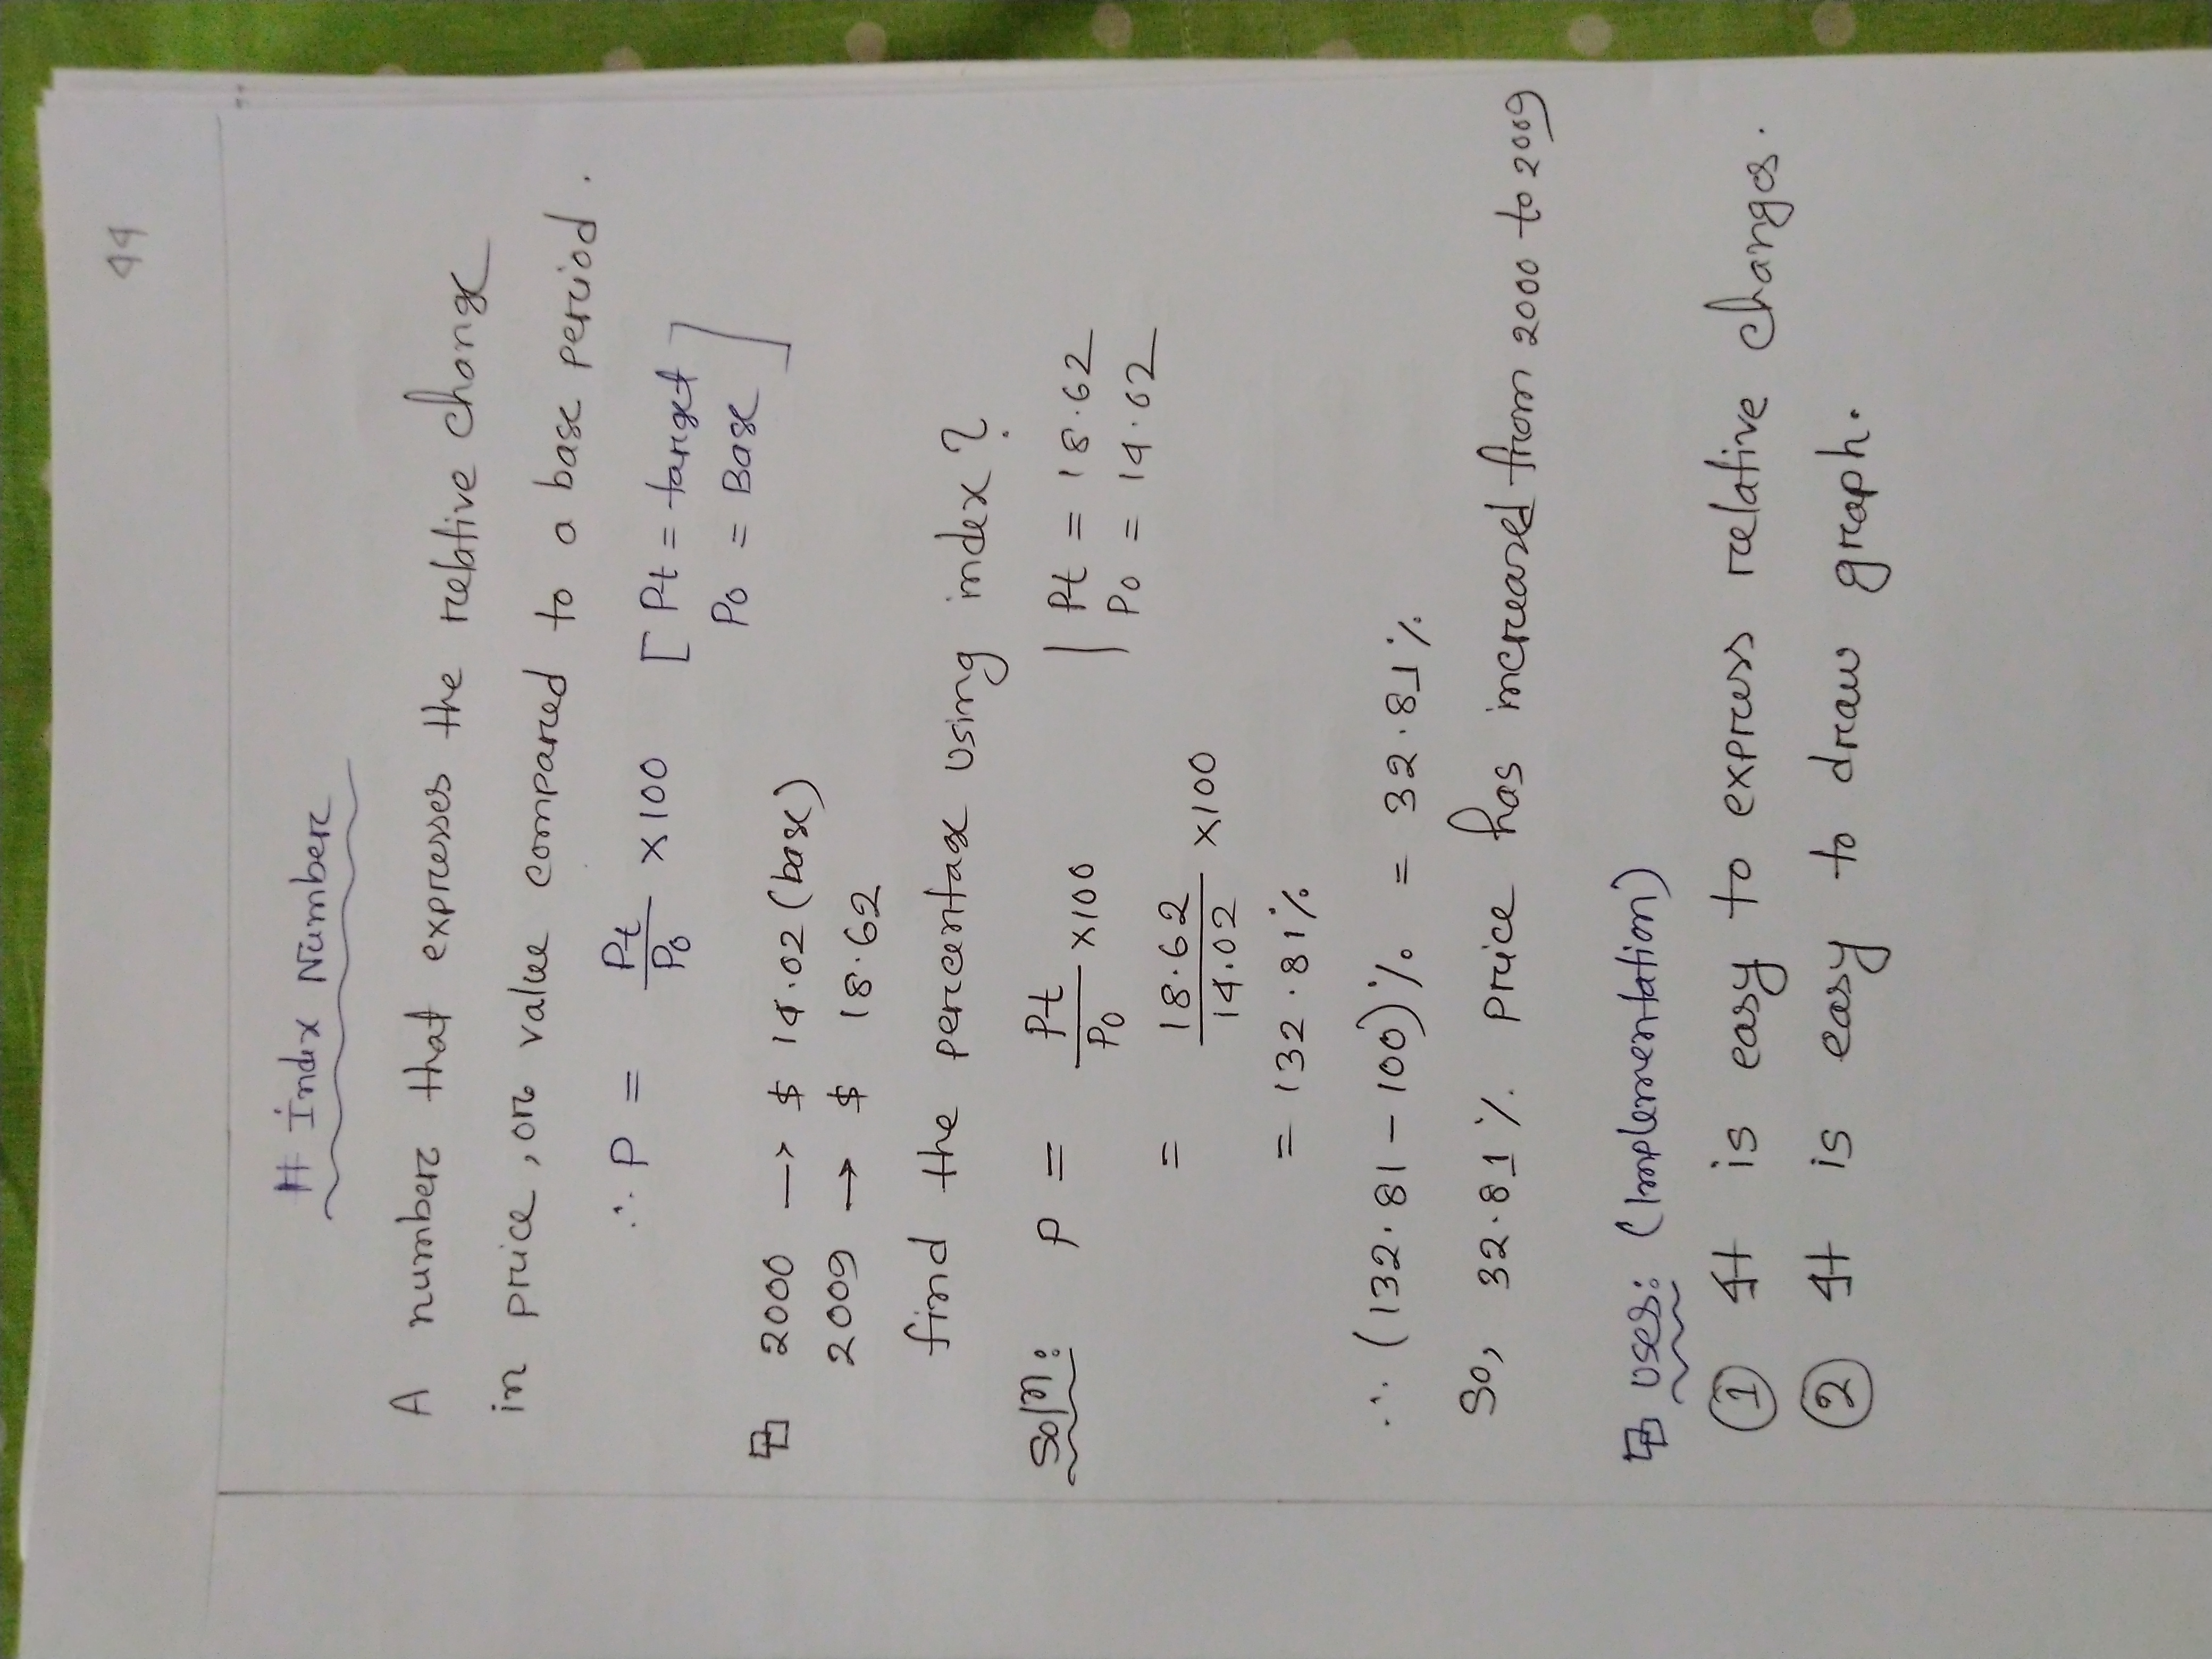 44
# Index Number
A number that expresses the relative change
in price, or value compared to a base period.
∴ P = Pt/P0 × 100 [Pt = target
P0 = Base]
2000 → $ 14.02 (base)
2009 → $ 18.62
find the percentage using index?
Soln: P = Pt/P0 × 100 | Pt = 18.62
P0 = 14.02
= 18.62/14.02 × 100
= 132.81%
∴ (132.81 - 100)% = 32.81%
So, 32.81% price has increased from 2000 to 2009
uses: (Implementation)
① It is easy to express relative changes.
② It is easy to draw graph.